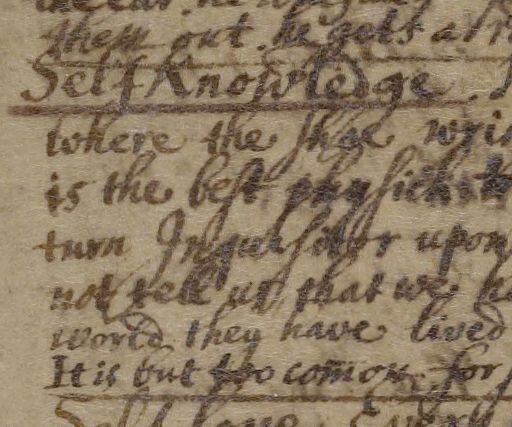 them out. he gets a
Self Knowledge.
where the shoe
is the best physick
turn Inquisitor upon
not tell us that we
world they have lived
It is but too com̄on for
Self love. Every